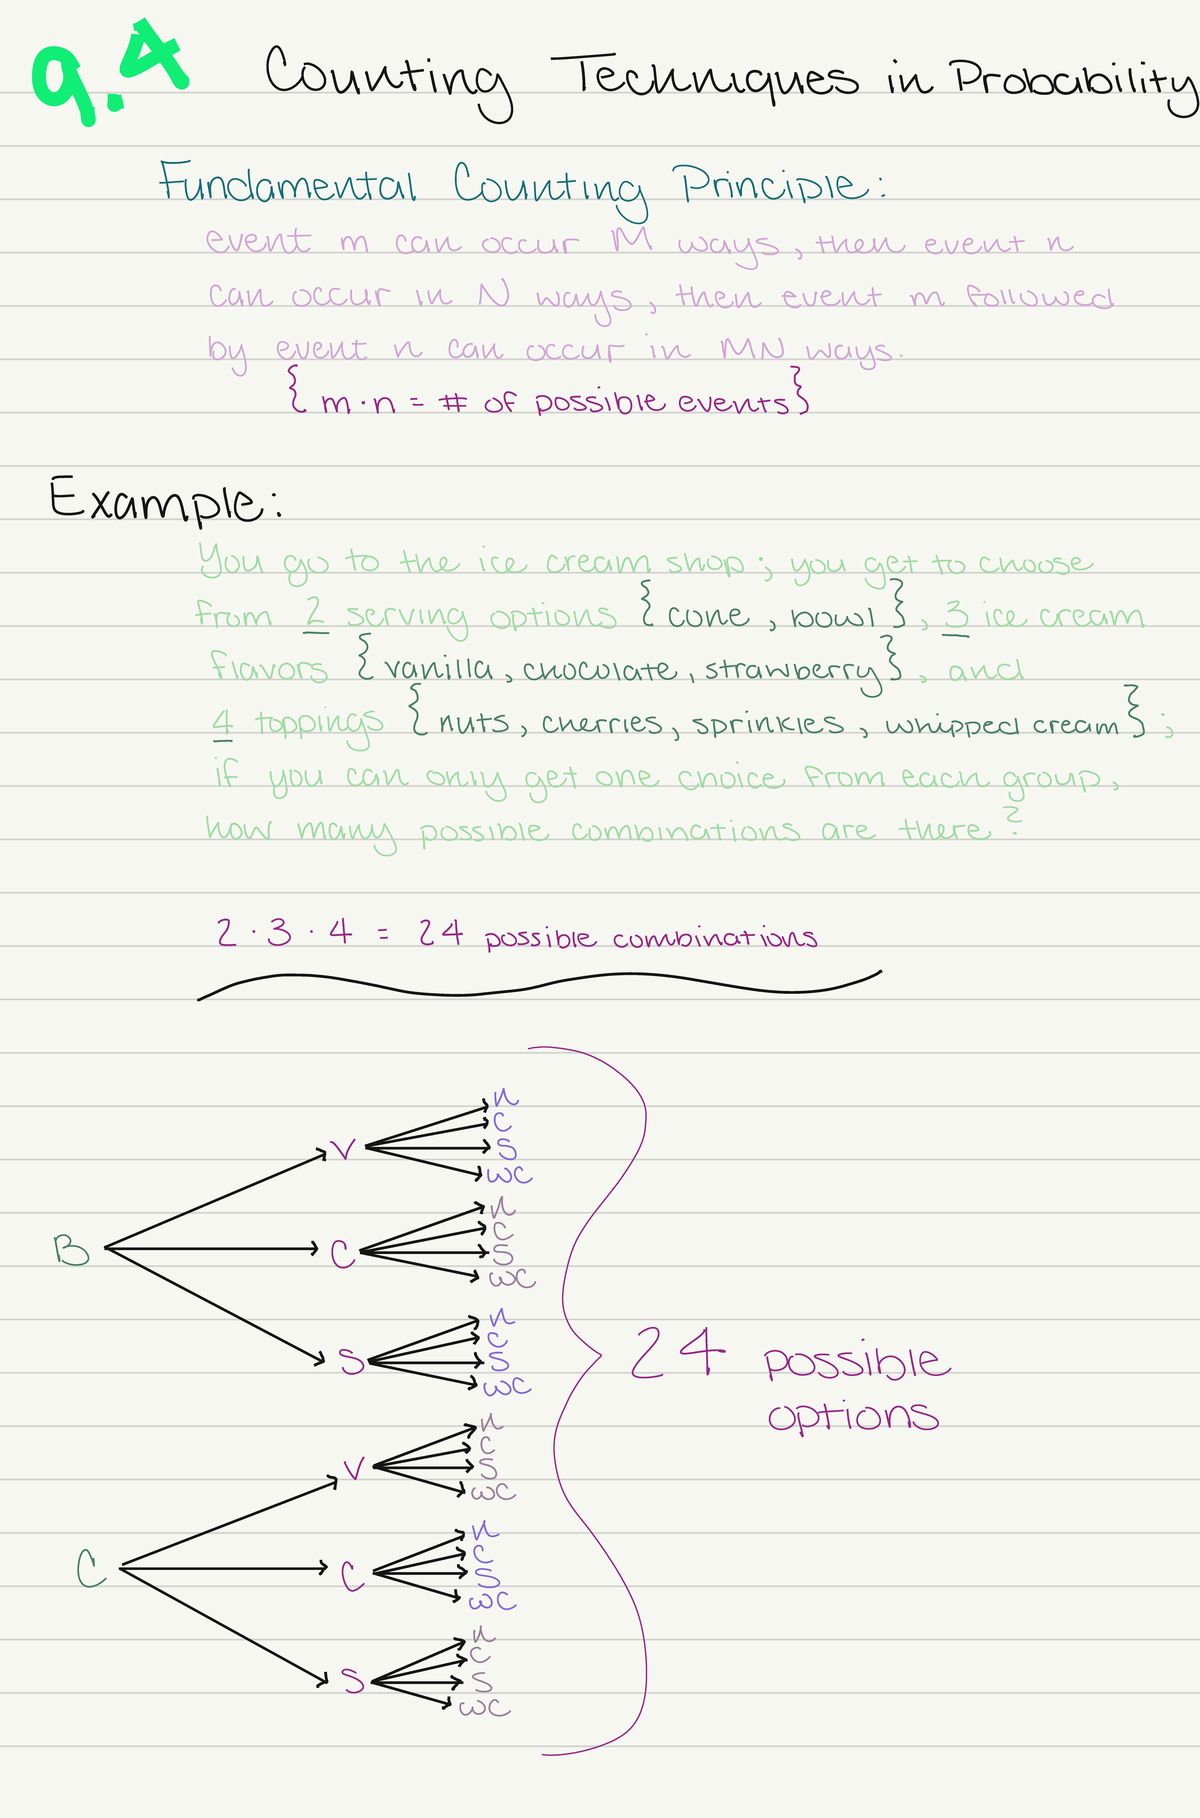 9.4 Counting Techniques in Probability
Fundamental Counting Principle:
event m can occur M ways, then event n
can occur in N ways, then event m followed
by event n can occur in MN ways.
{ m·n = # of possible events}
Example:
You go to the ice cream shop; you get to choose
from 2 serving options { cone, bowl }, 3 ice cream
flavors { vanilla, chocolate, strawberry}, and
4 toppings { nuts, cherries, sprinkles, whipped cream};
if you can only get one choice from each group,
how many possible combinations are there?
2 · 3 · 4 = 24 possible combinations
B
V
n
c
s
wc
C
n
c
s
wc
S
n
c
s
wc
C
V
n
c
s
wc
C
n
c
s
wc
S
n
c
s
wc
24 possible
options